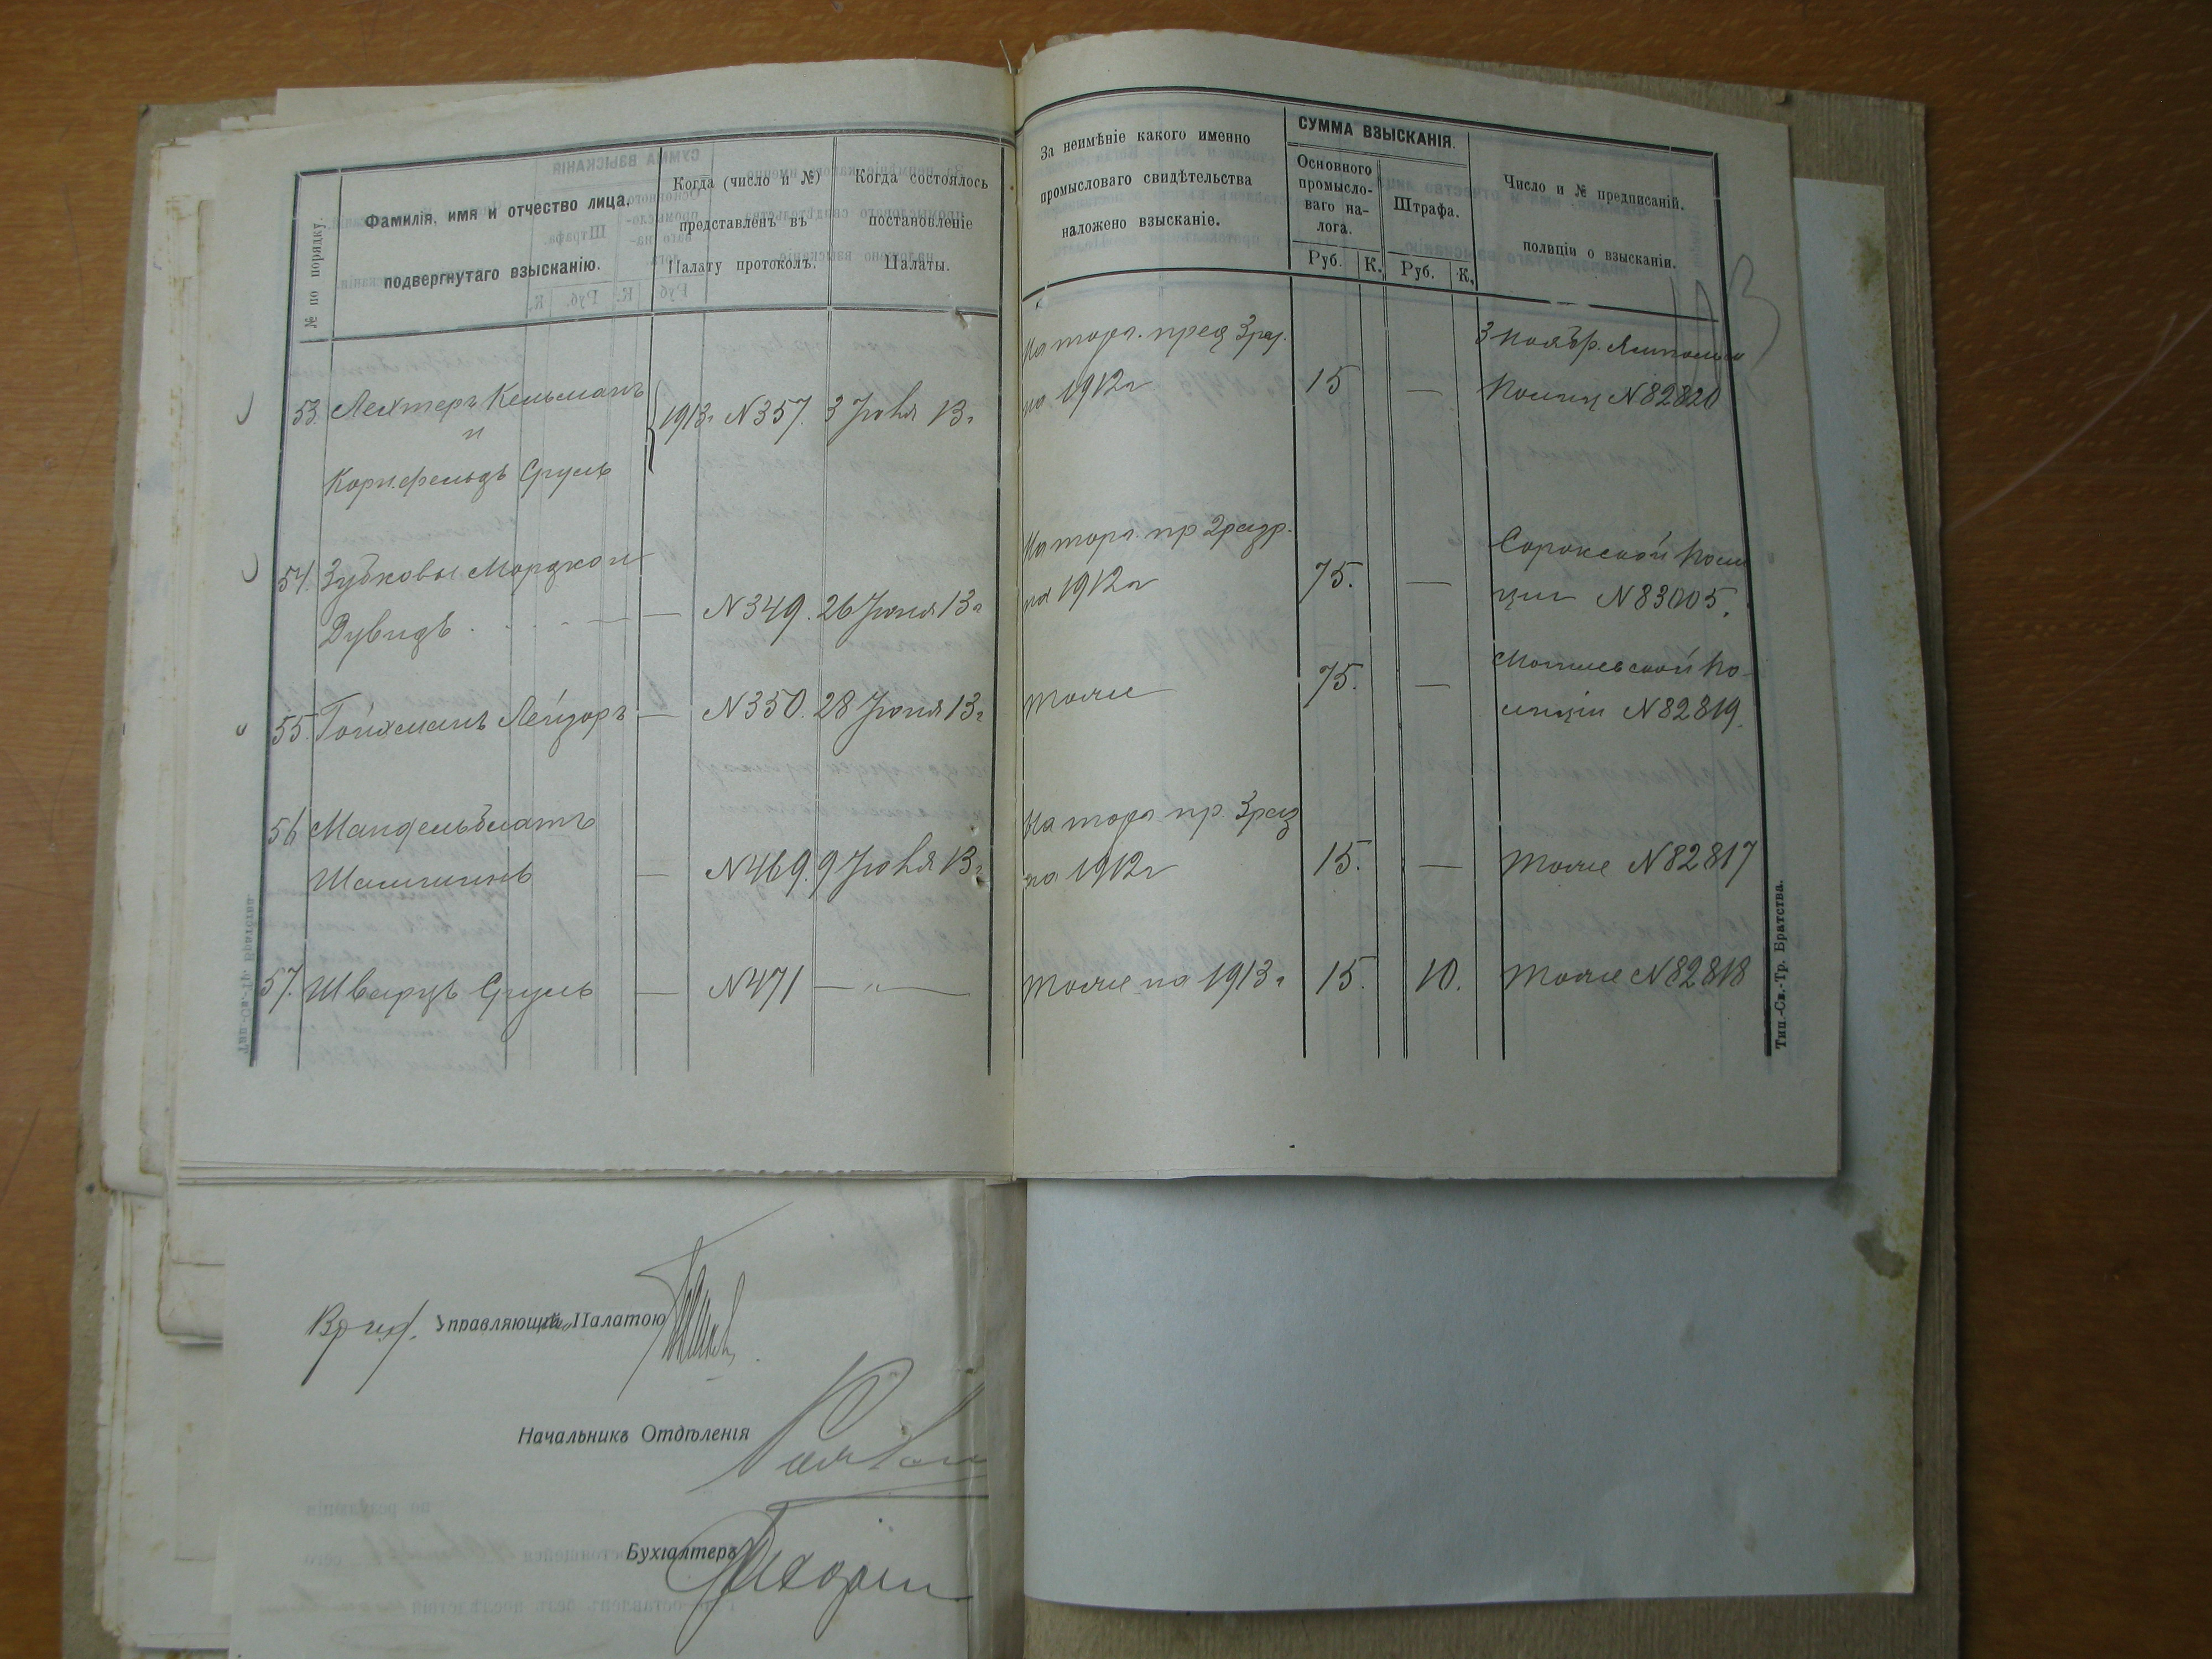 № по порядку.
Фамилія, имя и отчество лица,
подвергнутаго взысканію.
Когда (число и №)
представленъ въ
Палату протоколъ.
Когда состоялось
постановленіе
Палаты.
За неимѣніе какого именно
промысловаго свидѣтельства
наложено взысканіе.
СУММА ВЗЫСКАНІЯ.
Основного
промысло-
ваго на-
лога.
Штрафа.
Руб. К. Руб. К.
Число и № предписаній.
полиціи о взысканіи.
53. Лехтеръ Кельманъ
и
Корнфельдъ Сруль
1913г N357. 3 Іюля 13г
На торг. пред 3 раз.
на 1912г
15 —
3 Ноябр. Ямпольск
Полиц N82820
54. Зубковы Мордко и
Дувидъ — N349. 26 Іюня 13г
На торг. пр 2 разр.
на 1912г 75. —
Сорокской Поли
ции N83005.
55. Гойхманъ Лейзоръ — N350. 28 Іюня 13г
тоже 75. —
Могилевской По-
лиціи N82819.
56 Мандельблатъ
— N469. 9 Іюля 13г
На торг. пр. 3 раз
на 1912г 15. — тоже N82817
57. Шварцъ Сруль — N471 — „ —
тоже на 1913г 15. 10. тоже N82818
Тип.-Св.-Тр. Братства.
Управляющій Палатою
Начальникъ Отдѣленія
Бухгалтеръ